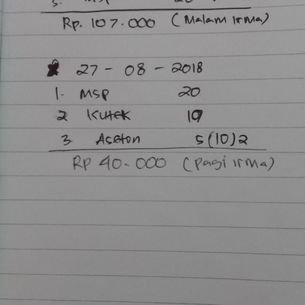 Rp. 107.000 (Malam irma)
27 - 08 - 2018
1. MSP 20
2 Kutek 10
3 Aseton 5 (10) 2
Rp 40.000 (Pagi irma)